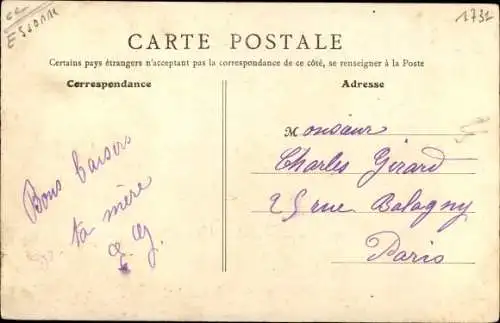 ESSONNE
1731
CARTE POSTALE
Certains pays étrangers n'acceptant pas la correspondance de ce côté, se renseigner à la Poste
Correspondance
Adresse
Bons baisers
ta mère
Monsieur
Charles Girard
25 rue Balagny
Paris